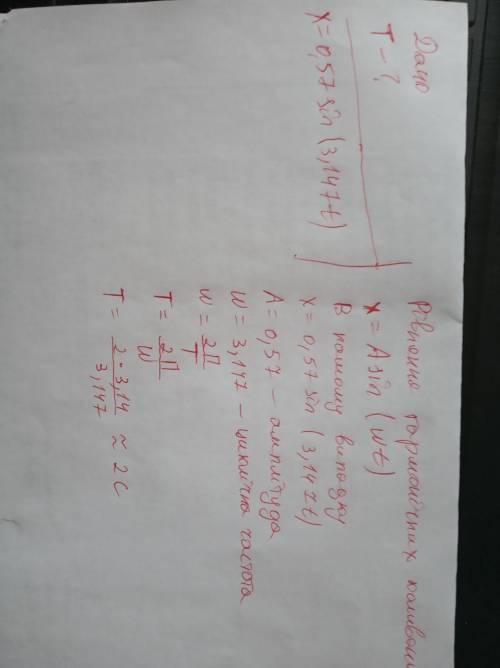 Дано
T - ?
x = 0,57 sin (3,147t)
Рівняння гармонічних коливань
x = A sin (wt)
В нашому випадку
x = 0,57 sin (3,147t)
A = 0,57 - амплітуда
w = 3,147 - циклічна частота
w = 2П/T
T = 2П/w
T = 2·3,14/3,147 ≈ 2с